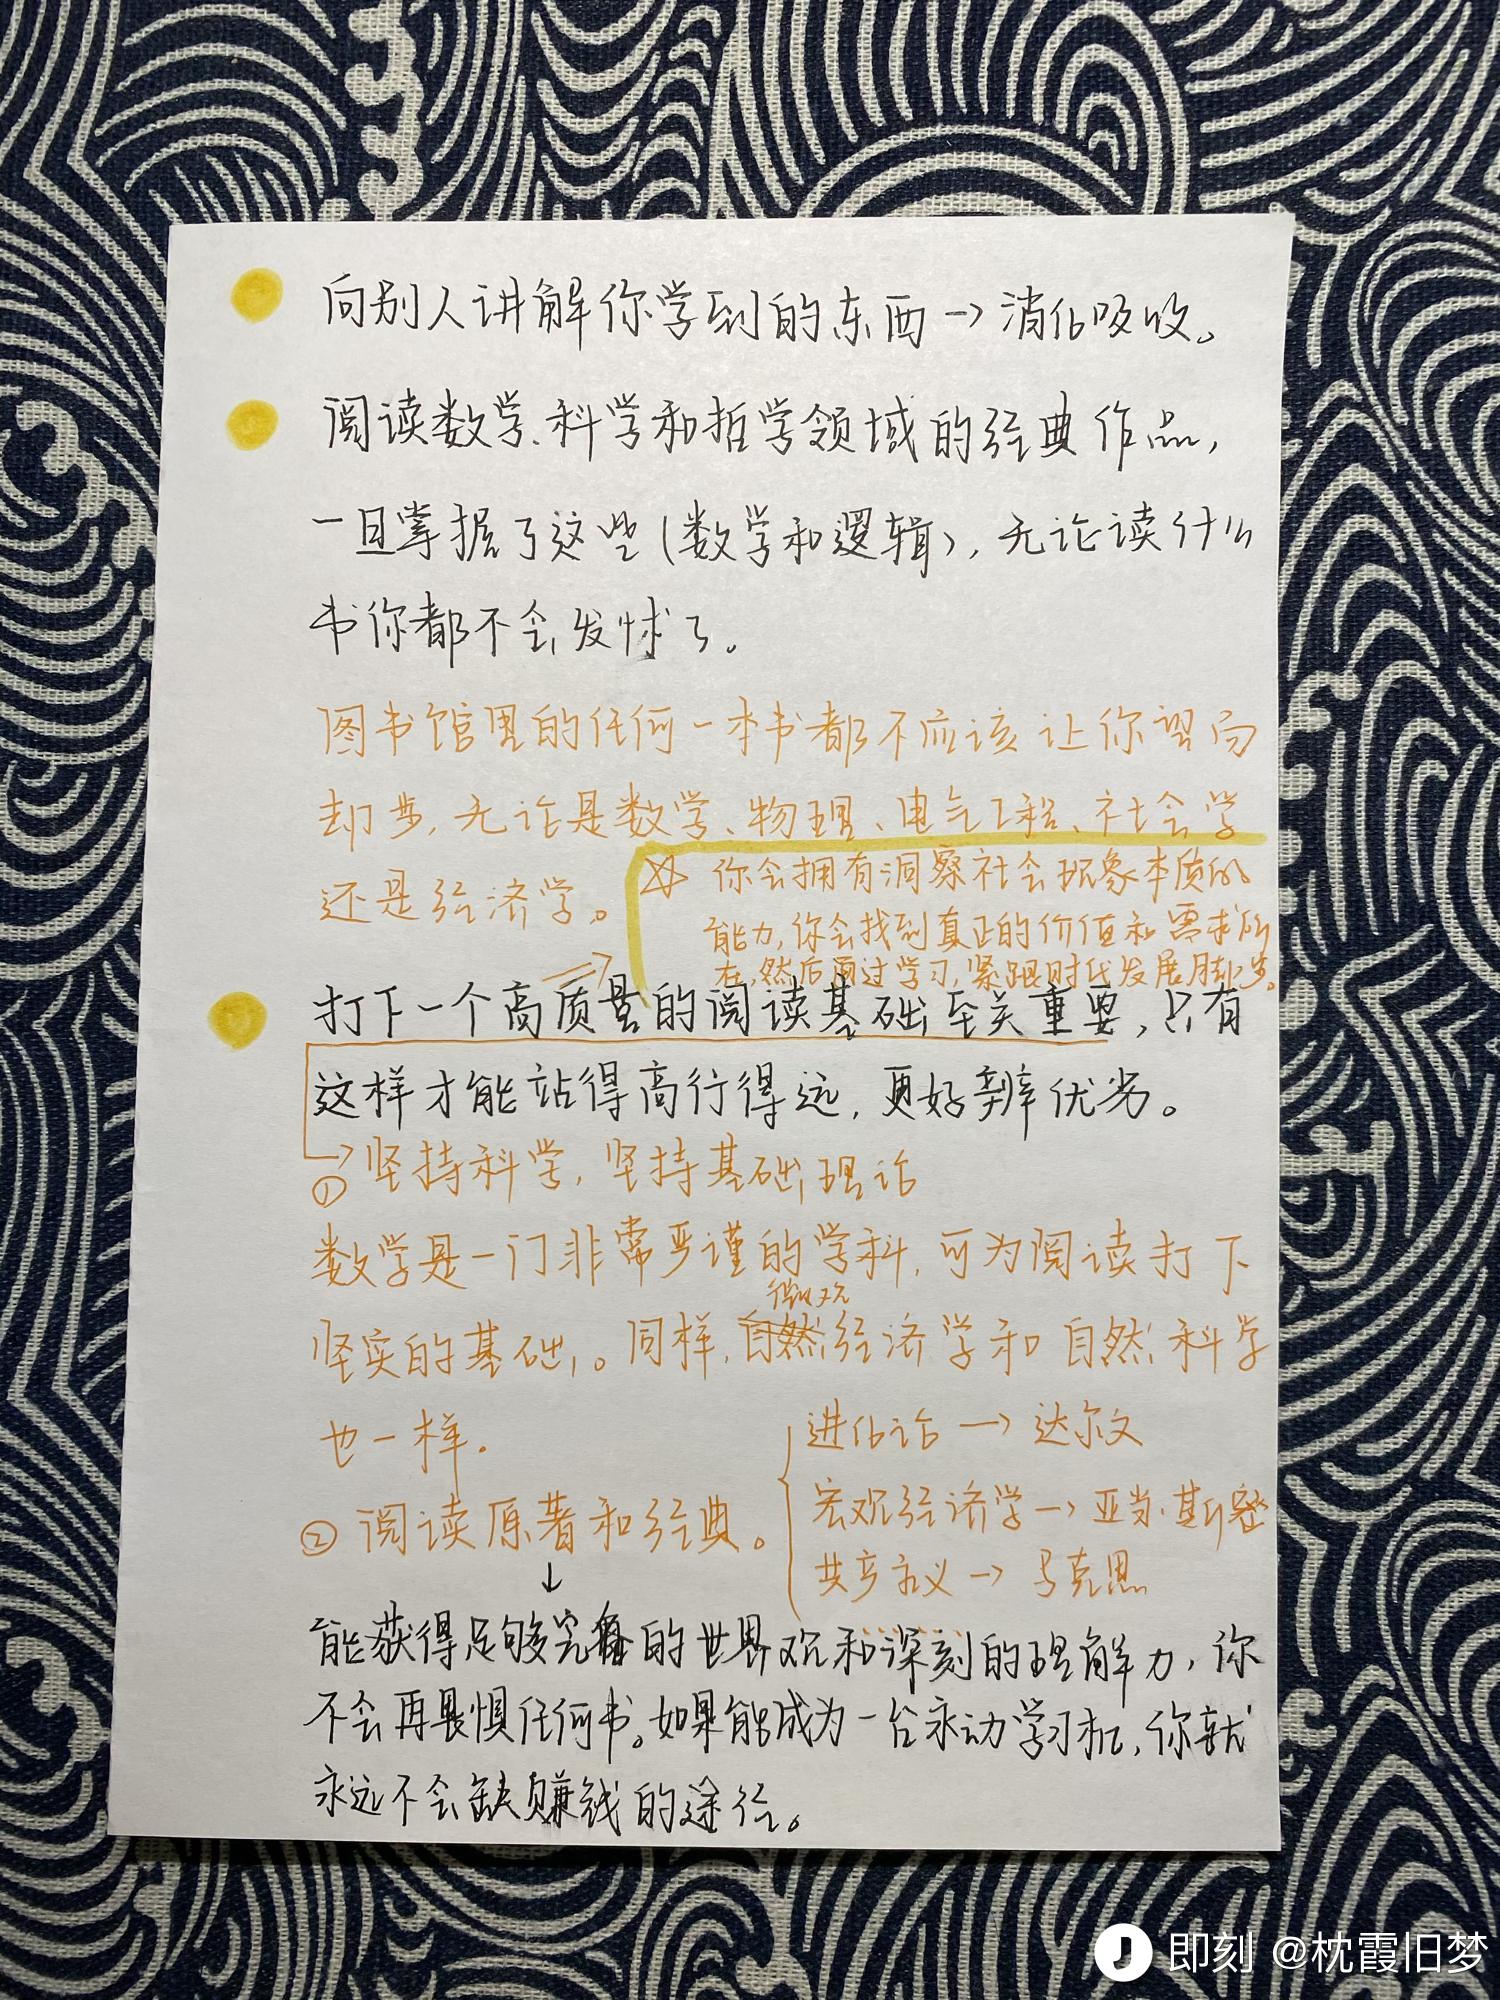 向别人讲解你学到的东西→消化吸收。
阅读数学、科学和哲学领域的经典作品，
一旦掌握了这些(数学和逻辑)，无论读什么
书你都不会发怵了。
图书馆里的任何一本书都不应该让你望而
却步，无论是数学、物理、电气工程、社会学
还是经济学。
☆ 你会拥有洞察社会现象本质的
能力，你会找到真正的价值和需求所
在，然后通过学习，紧跟时代发展脚步。
打下一个高质量的阅读基础至关重要，只有
这样才能站得高行得远，更好辨优劣。
→坚持科学，坚持基础理论
①
数学是一门非常严谨的学科，可为阅读打下
微观
坚实的基础。同样，自然经济学和自然科学
也一样。
② 阅读原著和经典。
进化论→达尔文
宏观经济学→亚当·斯密
共产主义→马克思
↓
能获得足够完备的世界观和深刻的理解力，你
不会再畏惧任何书。如果能成为一台永动学习机，你就
永远不会缺赚钱的途径。
即刻 @枕霞旧梦